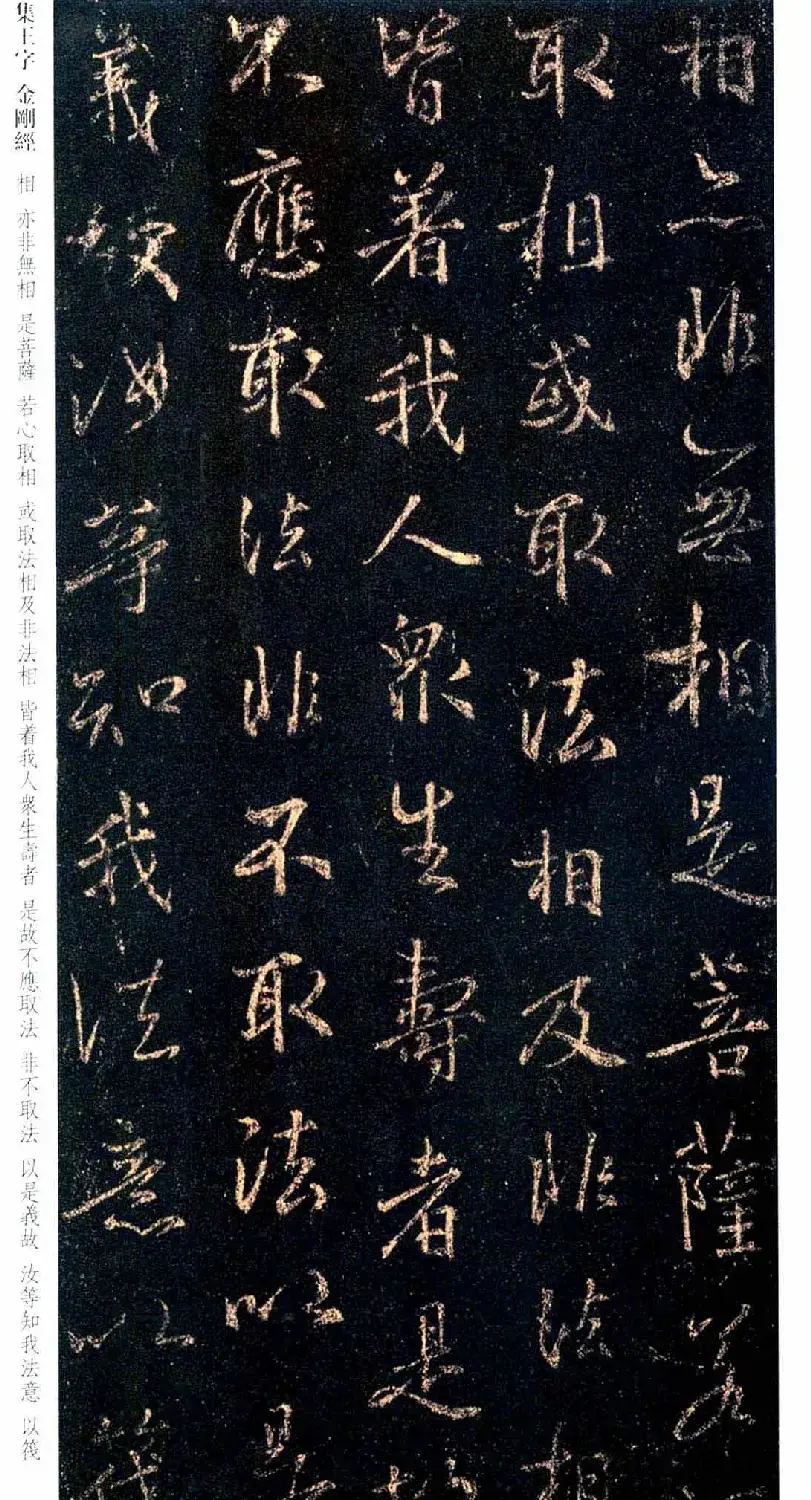 相亦非無相是菩薩若心
取相或取法相及非法相
皆著我人衆生壽者是故
不應取法非不取法以是
義故汝等知我法意以筏
集王字 金剛經 相 亦非無相 是菩薩 若心取相 或取法相及非法相 皆着我人衆生壽者 是故不應取法 非不取法 以是義故 汝等知我法意 以筏